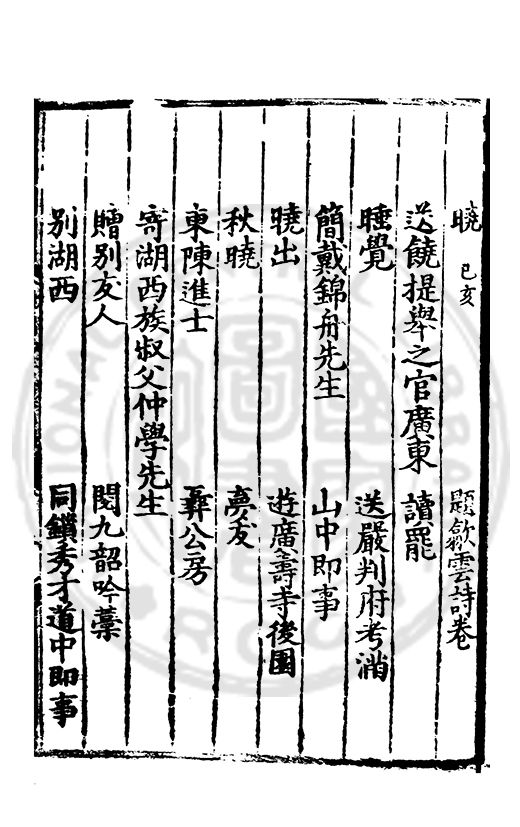 曉 己亥 題歛雲詩卷
送饒提舉之官廣東 讀罷
睡覺 送嚴判府考滿
簡戴錦舟先生 山中即事
曉出 遊廣壽寺後園
秋曉 夢友
柬陳進士 彞公房
寄湖西族叔父仲學先生
贈別友人 閱九韶吟藁
別湖西 同鎖秀才道中即事